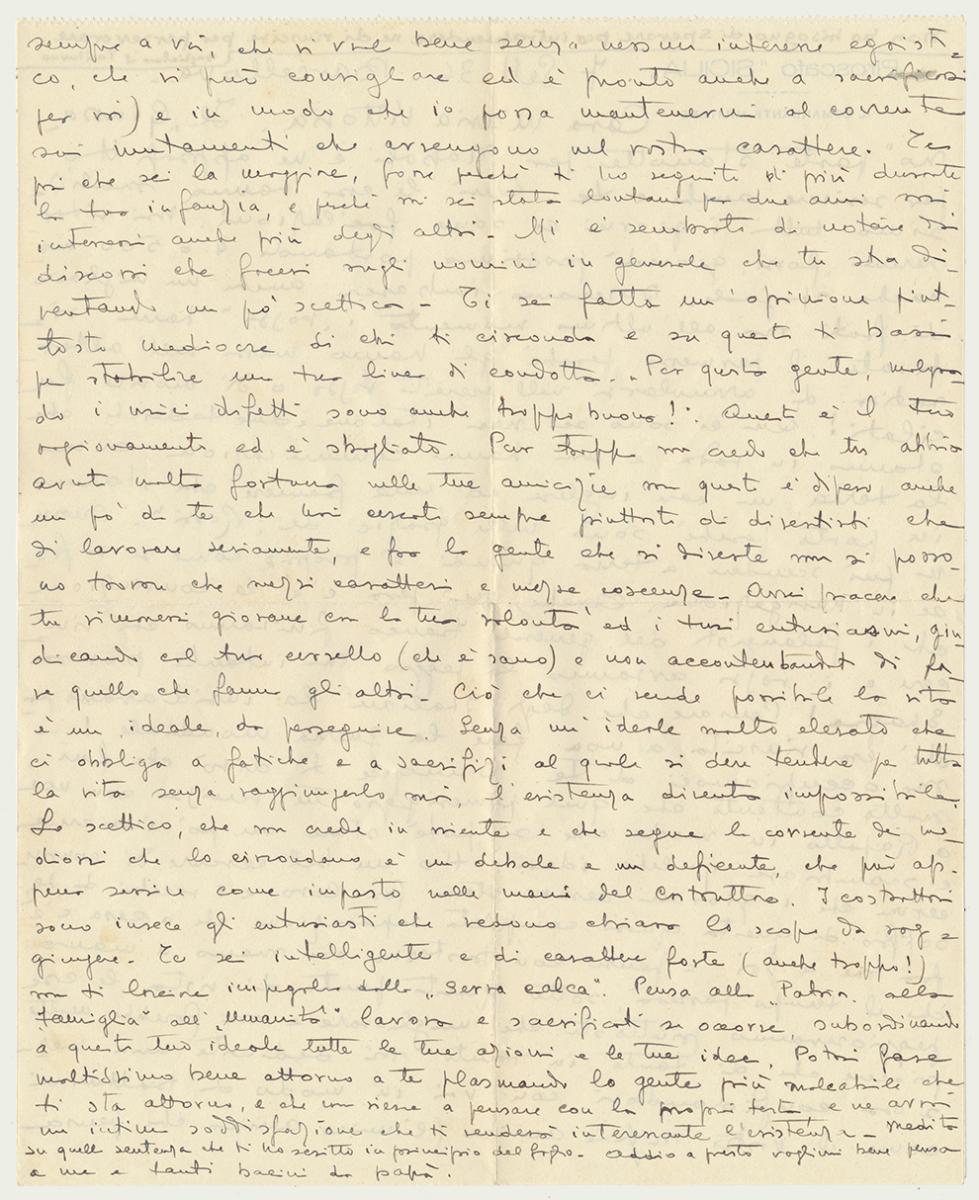 sempre a voi, che vi vuol bene senza nessun interesse egoisti-
co, che vi può consigliare ed è pronto anche a sacrificarsi
per voi) e in modo che io possa mantenermi al corrente
sui mutamenti che avvengono nel vostro carattere. Tu
poi che sei la maggiore, forse perché ti ho seguita di più durante
la tua infanzia, e perché mi sei stata lontana per due anni mi
interessi anche più degli altri - Mi è sembrato di notare da
discorsi che facevi sugli uomini in generale che tu sta di-
ventando un po' scettica - Ti sei fatta un'opinione piut-
tosto mediocre di chi ti circonda e su questa ti basi
per stabilire una tua linea di condotta. "Per questa gente, malgra-
do i miei difetti sono anche troppo buona!": Questo è il tuo
ragionamento ed è sbagliato. Pur troppo non credo che tu abbia
avuto molta fortuna nelle tue amicizie, ma questo è dipeso anche
un po' da te che hai cercato sempre piuttosto di divertirti che
di lavorare seriamente, e fra la gente che si diverte non si posso-
no trovare che mezzi caratteri e mezze coscenze - Avrei piacere che
tu rimanessi giovane con la tua volontà ed i tuoi entusiasmi, giu-
dicando col tuo cervello (che è sano) e non accontentandoti di fa-
re quello che fanno gli altri - Ciò che ci rende possibile la vita
è un ideale, da perseguire. Senza un'ideale molto elevato che
ci obbliga a fatiche e a sacrifizi al quale si deve tendere per tutta
la vita senza raggiungerlo mai, l'esistenza diventa impossibile.
Lo scettico, che non crede in niente e che segue la corrente dei me-
diocri che lo circondano è un debole e un deficente, che può ap-
pena servire come impasto nelle mani del costruttore. I costruttori
sono invece gli entusiasti che vedono chiaro lo scopo da rag-
giungere - Tu sei intelligente e di carattere forte (anche troppo!)
non ti lasciare impegolare dalla "serra calca". Pensa alla "Patria" alla
"Famiglia" all'"Umanità" lavora e sacrificati se occorre, subordinando
a questo tuo ideale tutte le tue azioni e le tue idee. Potrai fare
moltissimo bene attorno a te plasmando la gente più maleabile che
ti sta attorno, e che non riesce a pensare con la propria testa e ne avrai
un'intima soddisfazione che ti renderà interessante l'esistenza - Medita
su quella sentenza che ti ho scritto in principio del foglio - Addio a presto voglimi bene pensa
a me e tanti bacini da papà.